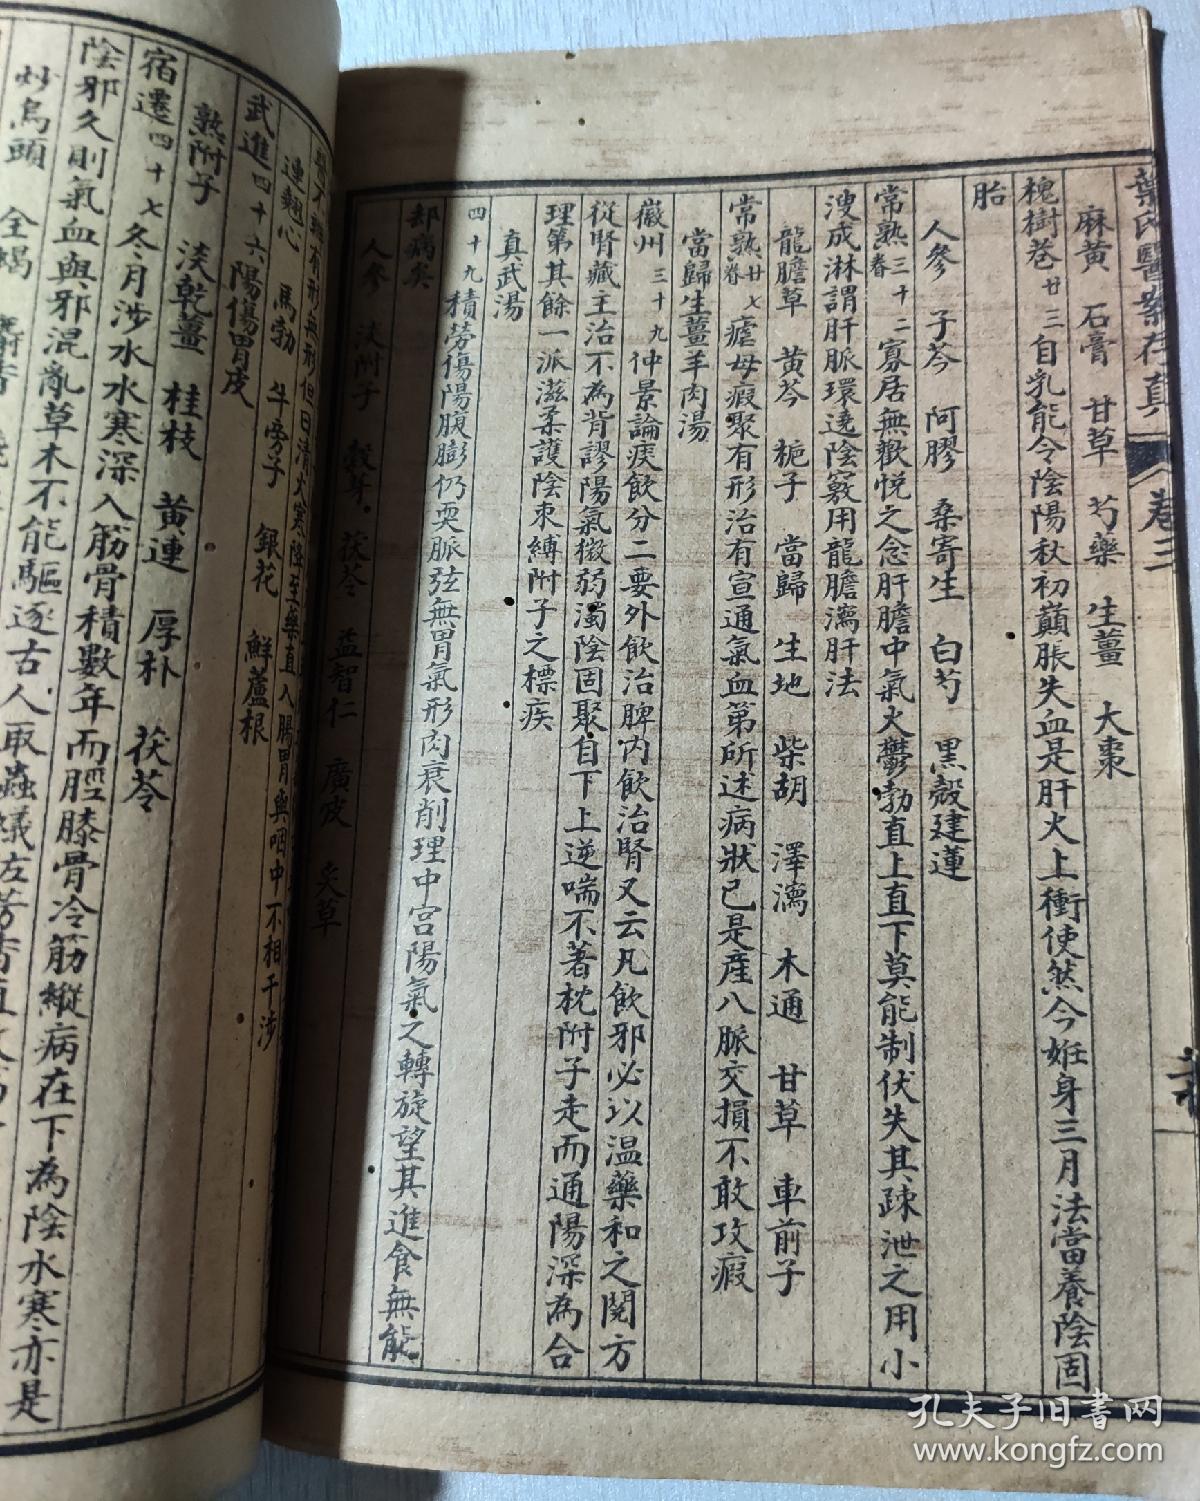 葉氏醫案存真
卷三
麻黃 石膏 甘草 芍藥 生薑 大棗
槐樹巷 廿三 自乳能令陰陽秋初巔脹失血是肝火上衝使然今姙身三月法當養陰固
胎
人參 子芩 阿膠 桑寄生 白芍 黑殼建蓮
常熟 三十二 寡居無歡悅之念肝膽中氣火鬱勃直上直下莫能制伏失其疎泄之用小
溲成淋謂肝脈環遶陰竅用龍膽瀉肝法
龍膽草 黃芩 梔子 當歸 生地 柴胡 澤瀉 木通 甘草 車前子
常熟 廿七 瘧母瘕聚有形治有宣通氣血第所述病狀已是產八脈交損不敢攻瘕
當歸生薑羊肉湯
徽州 三十九 仲景論痰飲分二要外飲治脾內飲治腎又云凡飲邪必以温藥和之閱方
從腎藏主治不為背謬陽氣微弱濁陰固聚自下上逆喘不著枕附子走而通陽深為合
理第其餘一派滋柔護陰束縛附子之標疾
真武湯
四十九 積勞傷陽腹膨仍耎脈弦無胃氣形肉衰削理中宮陽氣之轉旋望其進食無能
却病矣
人參 淡附子 穀芽 茯苓 益智仁 廣皮 炙草
有形無形但曰清火寒降至藥直入腸胃與咽中不相干涉
連翹心 馬勃 牛旁子 銀花 鮮蘆根
武進 四十六 陽傷胃戾
熟附子 淡乾薑 桂枝 黃連 厚朴 茯苓
宿遷 四十七 冬月涉水水寒深入筋骨積數年而脛膝骨冷筋縱病在下為陰水寒亦是
陰邪久則氣血與邪混亂草木不能驅逐古人取蟲蟻佐芳香
炒烏頭 全蝎 麝香
孔夫子旧书网
www.kongfz.com